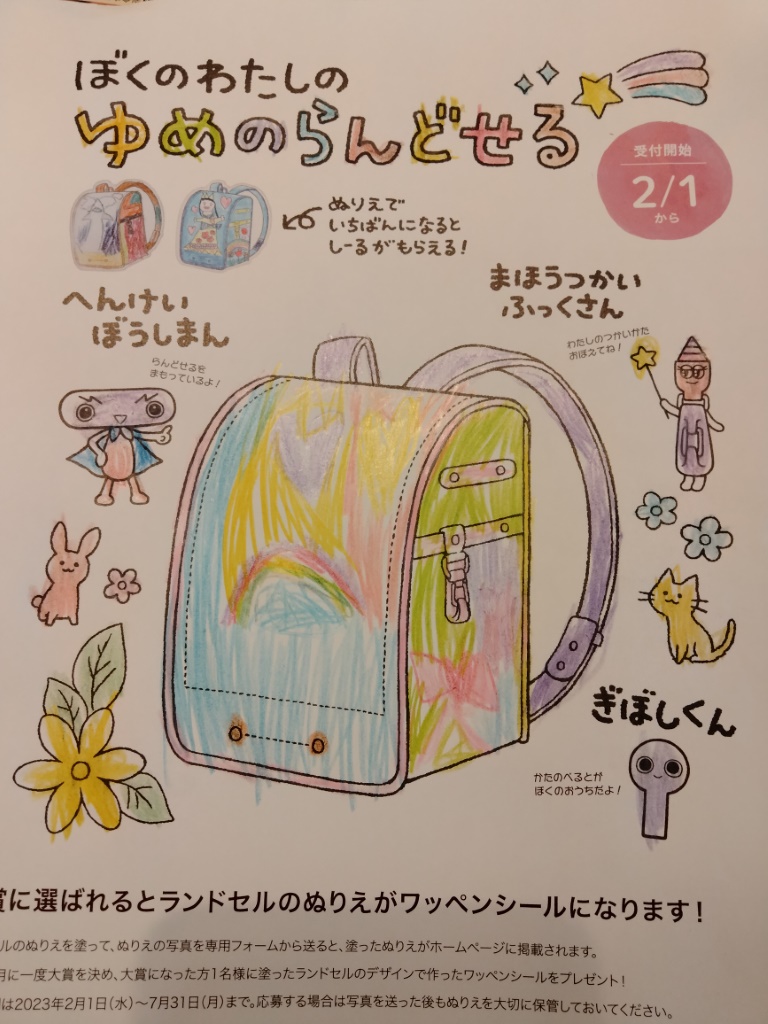 ぼくのわたしの
ゆめのらんどせる
受付開始
2/1
から
ぬりえで
いちばんになると
しーるがもらえる!
まほうつかい
ふっくさん
わたしのつかいかた
おぼえてね!
へんけい
ぼうしまん
らんどせるを
まもっているよ!
ぎぼしくん
かたのべるとが
ぼくのおうちだよ!
賞に選ばれるとランドセルのぬりえがワッペンシールになります!
ルのぬりえを塗って、ぬりえの写真を専用フォームから送ると、塗ったぬりえがホームページに掲載されます。
月に一度大賞を決め、大賞になった方1名様に塗ったランドセルのデザインで作ったワッペンシールをプレゼント!
は2023年2月1日(水)〜7月31日(月)まで。応募する場合は写真を送った後もぬりえを大切に保管しておいてください。